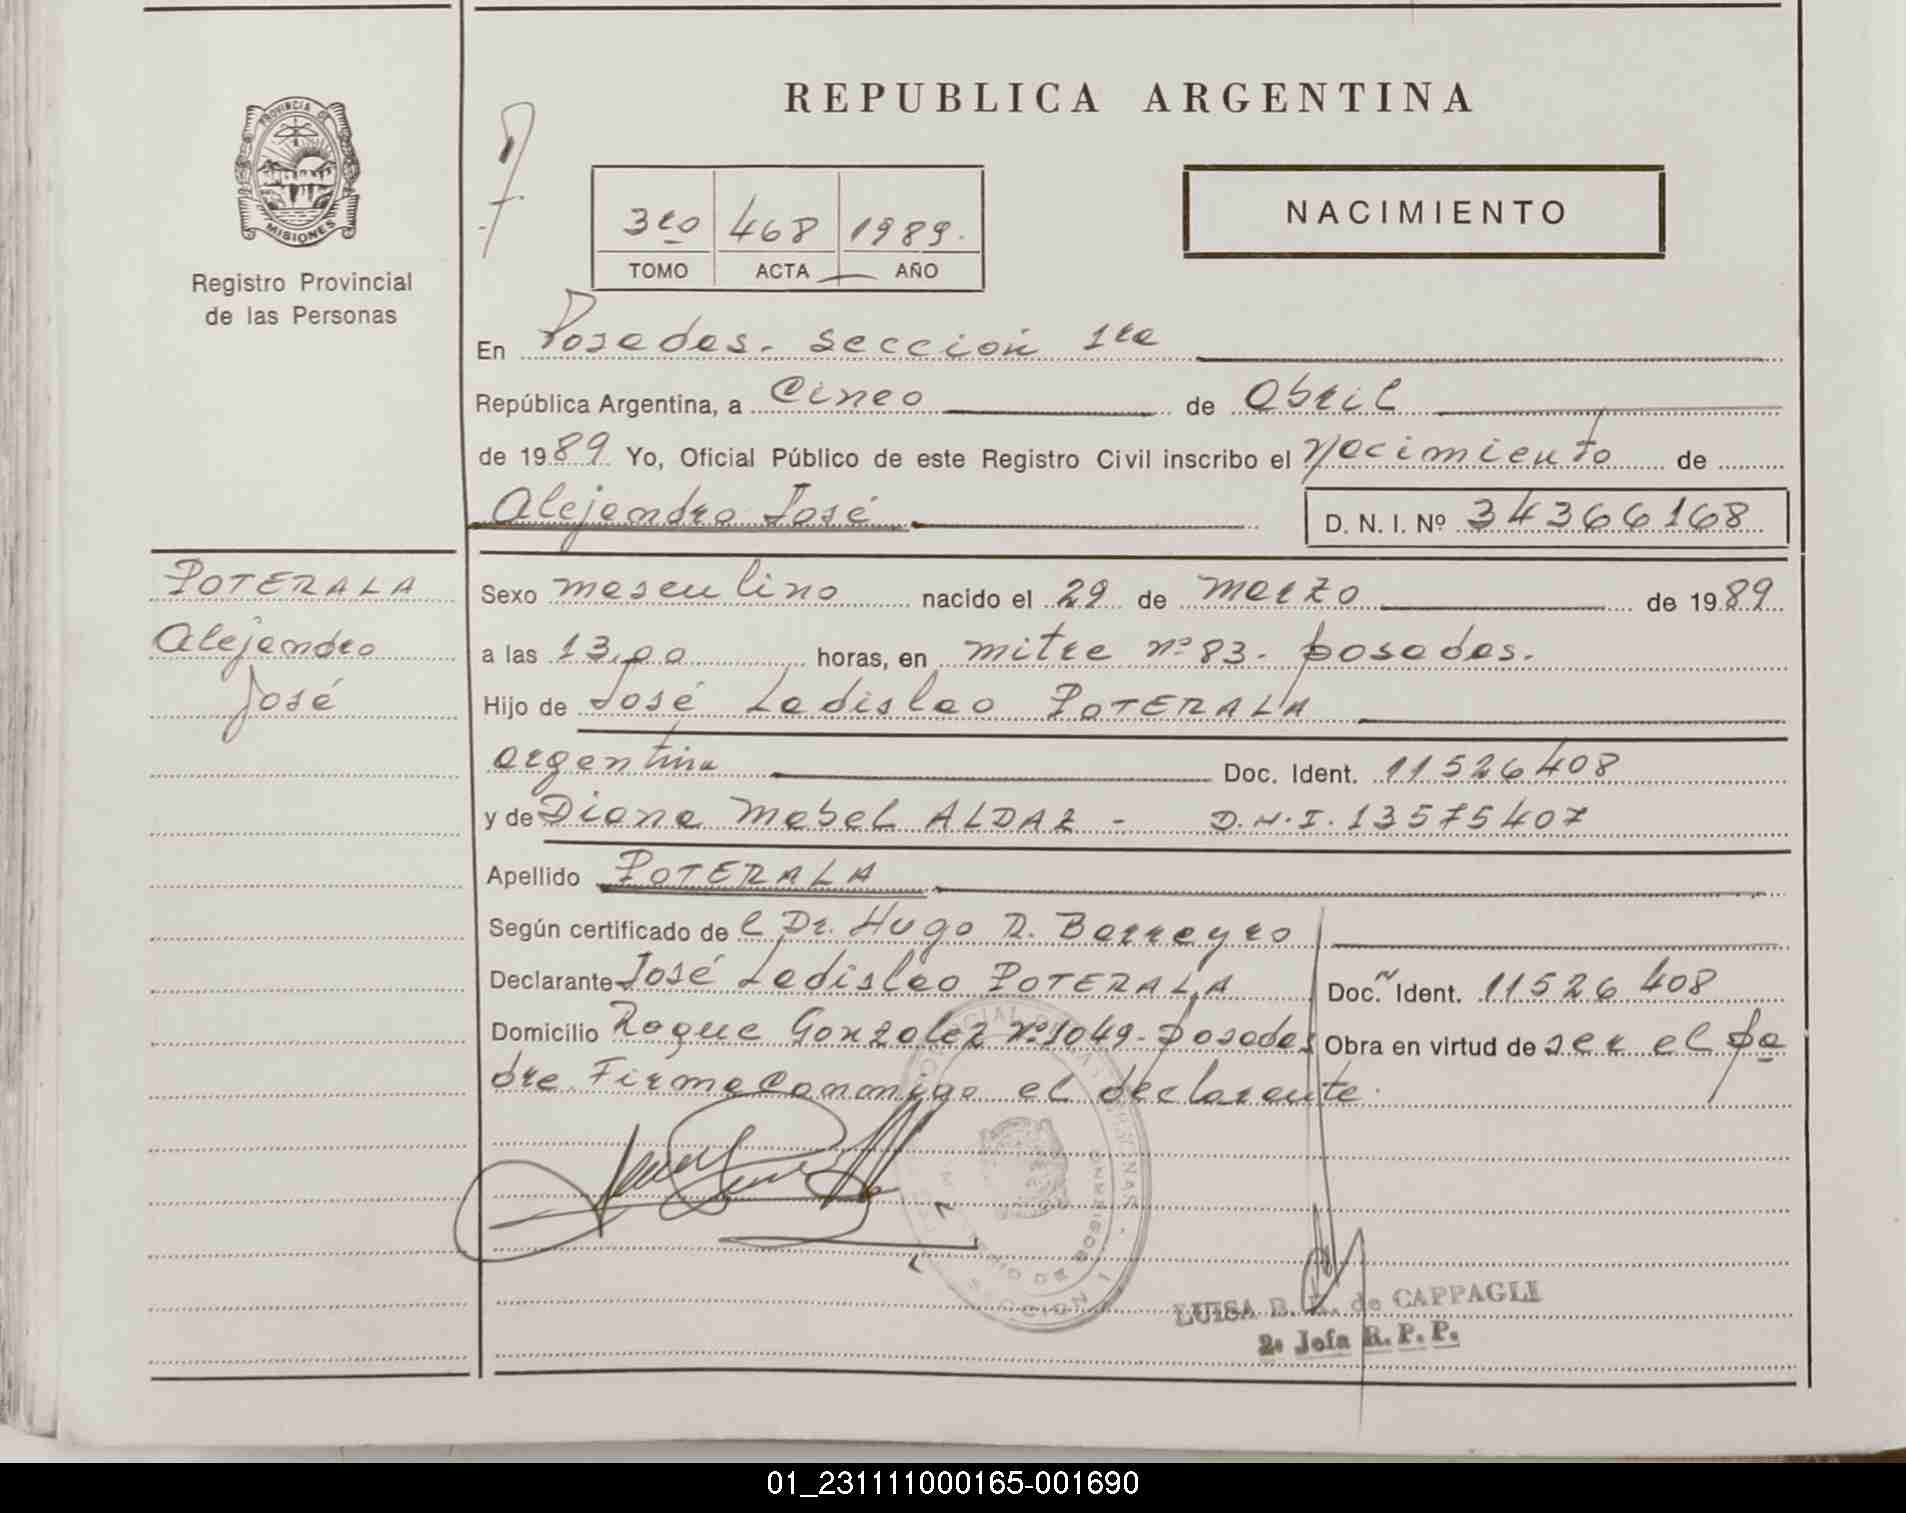 PROVINCIA DE
MISIONES
Registro Provincial
de las Personas
REPUBLICA ARGENTINA
NACIMIENTO
3ro 468 1989.
TOMO ACTA AÑO
En Posadas. sección 1ra
República Argentina, a Cinco de Abril
de 1989 Yo, Oficial Público de este Registro Civil inscribo el Nacimiento de
Alejandro José D. N. I. Nº 34366168
POTERALA
Alejandro
José
Sexo masculino nacido el 29 de marzo de 1989
a las 13,00 horas, en mitre nº 83. posadas.
Hijo de José Ladislao POTERALA
argentina Doc. Ident. 11526408
y de Diana Mabel ALDAZ - D.N.I. 13575407
Apellido POTERALA
Según certificado de l Dr. Hugo R. Barreyro
Declarante José Ladislao POTERALA Doc. Ident. 11526408
Domicilio Roque Gonzalez nº 1049-posadas Obra en virtud de ser el pa
dre. Firma Conmigo el declarante.
SECCION 1
LUISA B. R. de CAPPAGLI
2ª Jefa R. P. P.
01_231111000165-001690